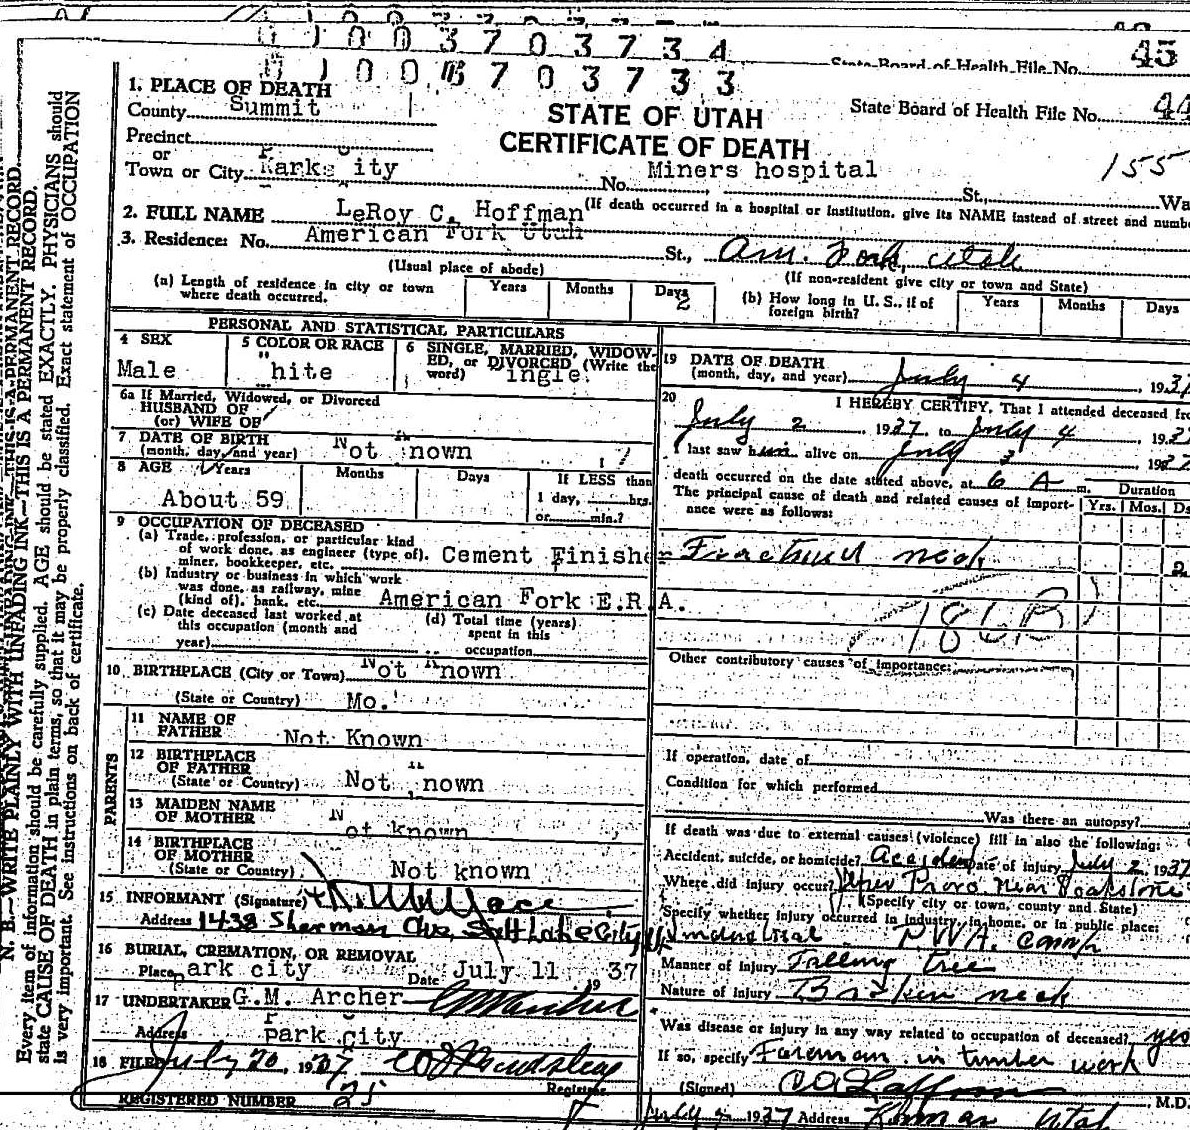 0 1 0 0 3 7 0 3 7 3 4
State Board of Health File No. 45
0 1 0 0 3 7 0 3 7 3 3
State Board of Health File No. 44
STATE OF UTAH
CERTIFICATE OF DEATH
155
1. PLACE OF DEATH
County Summit
Precinct
or
Town or City Park City No. Miners hospital St., Wa
(If death occurred in a hospital or institution, give its NAME instead of street and numbe
2. FULL NAME LeRoy C. Hoffman
3. Residence: No. American Fork Utah St., Am. Fork, Utah
(Usual place of abode) (If non-resident give city or town and State)
(a) Length of residence in city or town where death occurred. Years Months Days 2
(b) How long in U. S., if of foreign birth? Years Months Days
PERSONAL AND STATISTICAL PARTICULARS
4 SEX Male
5 COLOR OR RACE "hite
6 SINGLE, MARRIED, WIDOWED, or DIVORCED (Write the word) ingle
6a If Married, Widowed, or Divorced
HUSBAND OF
(or) WIFE OF
7 DATE OF BIRTH
(month, day, and year) Not nown
8 AGE Years Months Days If LESS than
About 59 1 day, hrs.
or min.?
9 OCCUPATION OF DECEASED
(a) Trade, profession, or particular kind of work done, as engineer (type of), miner, bookkeeper, etc. Cement Finishe
(b) Industry or business in which work was done, as railway, mine (kind of), bank, etc. American Fork E.R.A.
(c) Date deceased last worked at this occupation (month and year)
(d) Total time (years) spent in this occupation
10 BIRTHPLACE (City or Town) Not nown
(State or Country) Mo.
PARENTS
11 NAME OF FATHER Not Known
12 BIRTHPLACE OF FATHER (State or Country) Not nown
13 MAIDEN NAME OF MOTHER Not known
14 BIRTHPLACE OF MOTHER (State or Country) Not known
15 INFORMANT (Signature)
Address 1438 Sherman Ave, Salt Lake City U
16 BURIAL, CREMATION, OR REMOVAL
Place Park city Date July 11 1937
17 UNDERTAKER G.M. Archer
Address Park city
18 FILED July 20, 1937
Registrar
REGISTERED NUMBER 25
19 DATE OF DEATH
(month, day, and year) July 4, 193
20 I HEREBY CERTIFY, That I attended deceased fro
July 2, 1937, to July 4, 193
I last saw him alive on July 3, 1937
death occurred on the date stated above, at 6 A m.
The principal cause of death and related causes of importance were as follows: Duration
Yrs. Mos. Ds
Fractured neck 2
Other contributory causes of importance:
If operation, date of
Condition for which performed
Was there an autopsy?
If death was due to external causes (violence) fill in also the following:
Accident, suicide, or homicide? Accident Date of injury July 2 1937
Where did injury occur? Upper Provo near Soapstone
(Specify city or town, county and State)
Specify whether injury occurred in industry, in home, or in public place:
Industrial PWA. camp
Manner of Injury Falling tree
Nature of Injury Broken neck
Was disease or injury in any way related to occupation of deceased? yes
If so, specify Foreman in timber work
(Signed) M.D.
1937 Address Kamas Utah
N. B.—WRITE PLAINLY WITH UNFADING INK—THIS IS A PERMANENT RECORD.
Every item of information should be carefully supplied. AGE should be stated EXACTLY. PHYSICIANS should
state CAUSE OF DEATH in plain terms, so that it may be properly classified. Exact statement of OCCUPATION
is very important. See instructions on back of certificate.